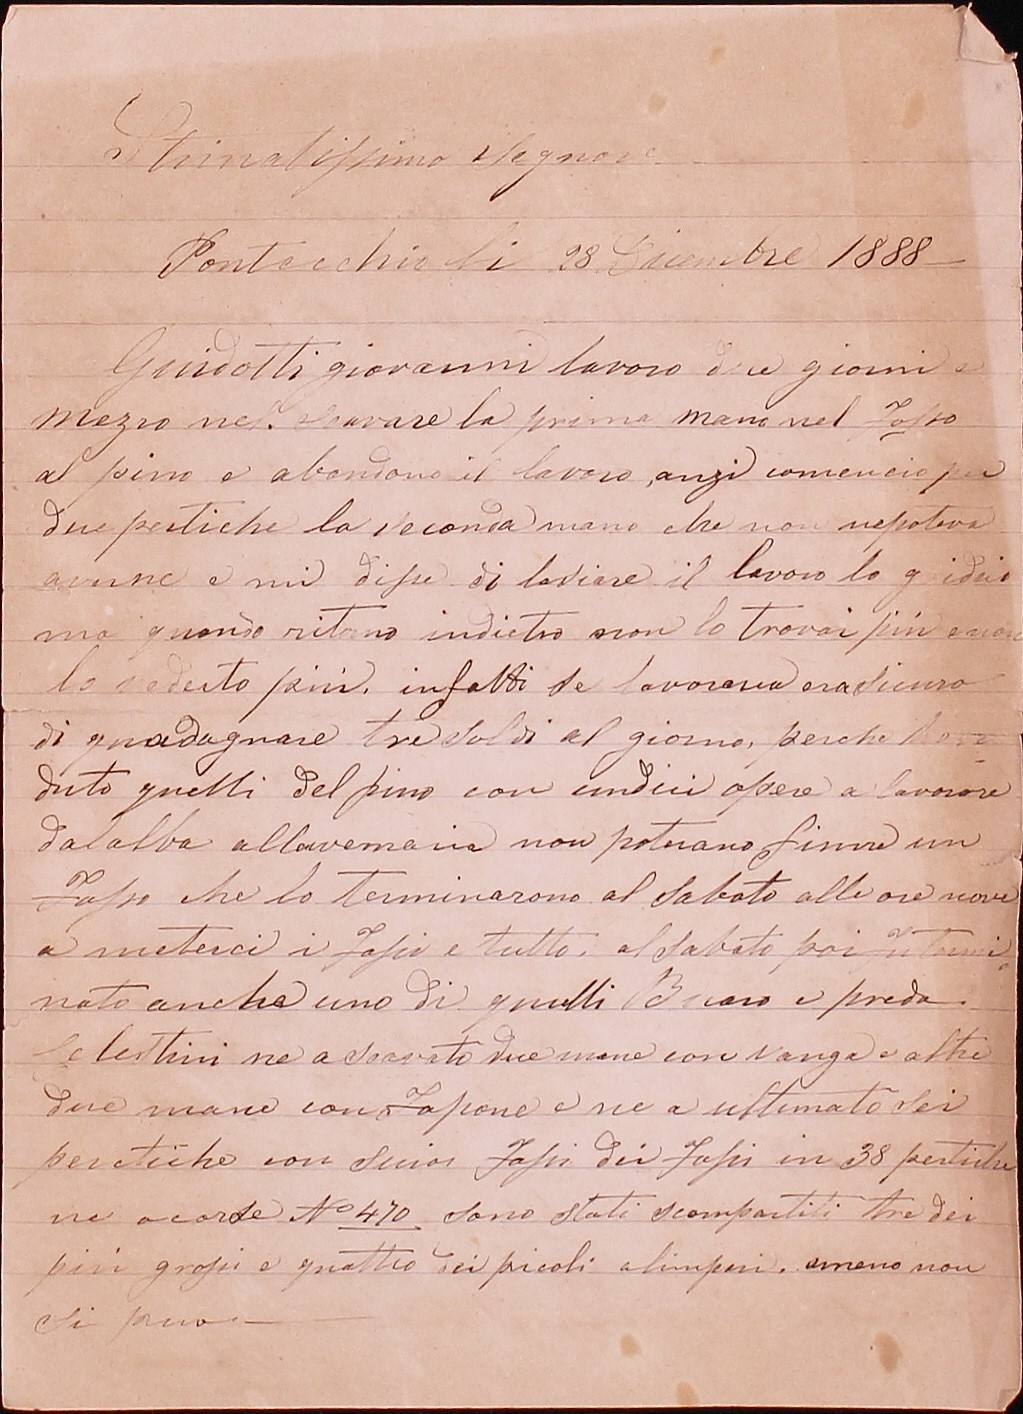 Stimatissimo Segnore
Pontecchio li 28 Dicembre 1888
Guidotti giovanni lavoro due giorni e
mezzo nel scavare la prima mano nel Fosso
al pino e abandono il lavoro, anzi comencio per
due pertiche la seconda mano che non nepoteva
averne e mi disse di lasiare il lavoro lo
ma quando ritorno indietro non lo trovai piu
lo veduto piu. infatti se lavorava erasicuro
di guadagnare tre soldi al giorno, perche
duto quelli del pino con undici opere a lavorare
dalalba allavemaria non potevano finire un
Fosso che lo terminarono al sabato alle ore nove
a meterci i Fassi e tutto. al sabato poi fu termi
nato anche uno di quelli Bucro e preda.
Celestini ne a scavato due mane con vanga e altre
due mane con Zapone e ne a ultimato sei
perctiche con suioi Fassi dei Fassi in 38 pertiche
ne ocorse No 470. sono stati scompartiti tre dei
piu grossi e quattro dei picoli alimpiri. ameno non
si puo.